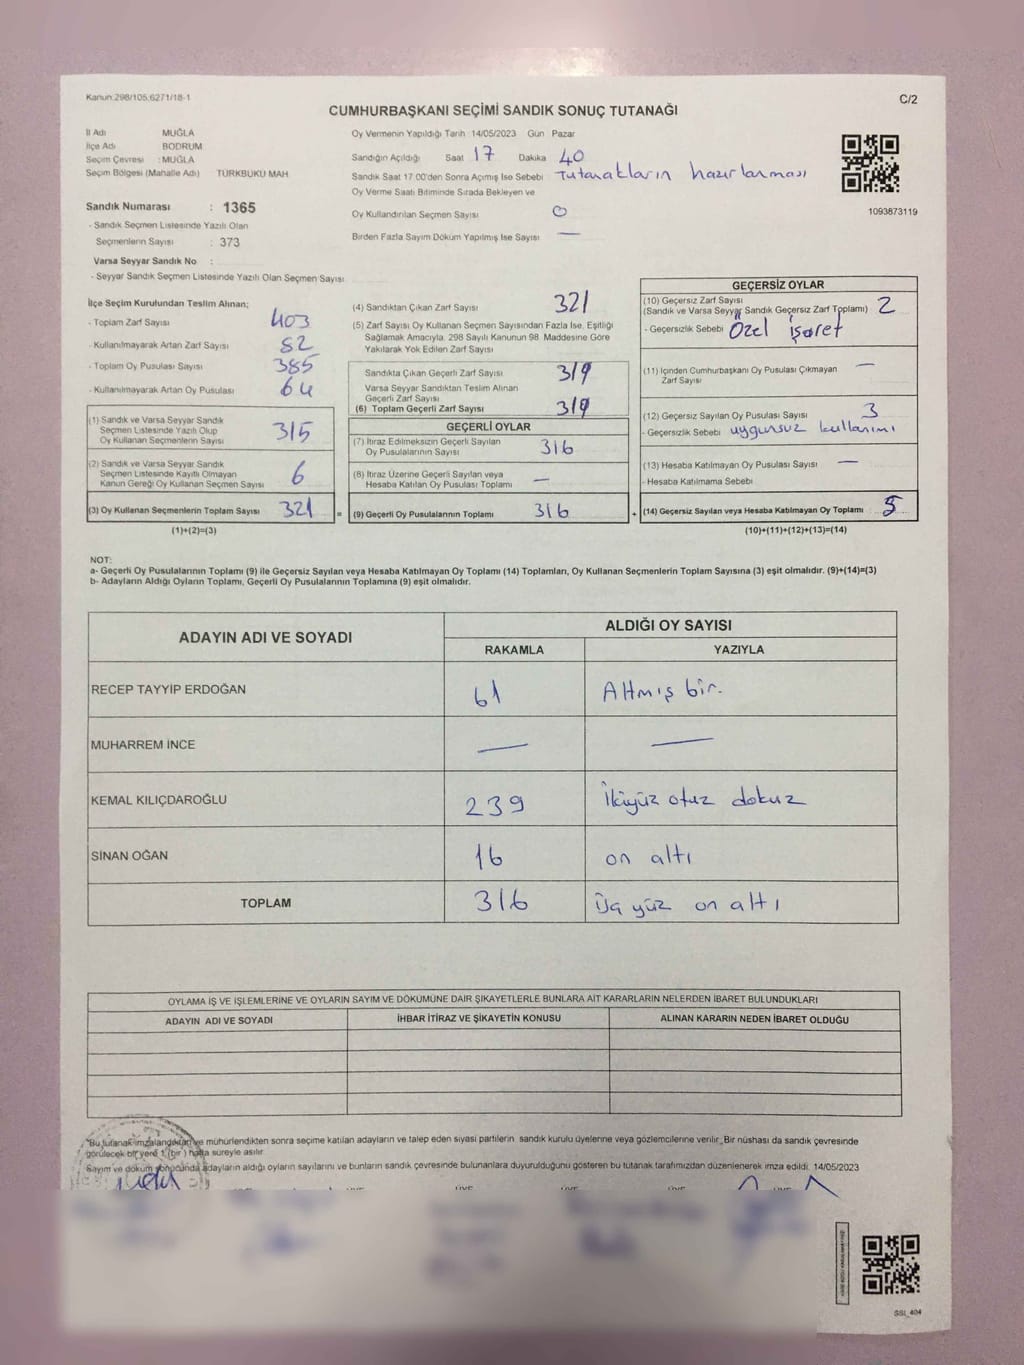 Kanun:298/105,6271/18-1
C/2
CUMHURBAŞKANI SEÇİMİ SANDIK SONUÇ TUTANAĞI
İl Adı MUĞLA
İlçe Adı BODRUM
Seçim Çevresi : MUĞLA
Seçim Bölgesi (Mahalle Adı) TÜRKBUKU MAH.
Sandık Numarası : 1365
- Sandık Seçmen Listesinde Yazılı Olan
Seçmenlerin Sayısı : 373
Varsa Seyyar Sandık No :
- Seyyar Sandık Seçmen Listesinde Yazılı Olan Seçmen Sayısı
Oy Vermenin Yapıldığı Tarih 14/05/2023 Gün Pazar
Sandığın Açıldığı Saat 17 Dakika 40
Sandık Saat 17:00'den Sonra Açımış İse Sebebi Tutanakların hazırlanması
Oy Verme Saati Bitiminde Sırada Bekleyen ve
Oy Kullandırılan Seçmen Sayısı 0
Birden Fazla Sayım Döküm Yapılmış İse Sayısı —
1093873119
İlçe Seçim Kurulundan Teslim Alınan;
- Toplam Zarf Sayısı 403
- Kullanılmayarak Artan Zarf Sayısı 82
- Toplam Oy Pusulası Sayısı 385
- Kullanılmayarak Artan Oy Pusulası 64
(1) Sandık ve Varsa Seyyar Sandık
Seçmen Listesinde Yazılı Olup
Oy Kullanan Seçmenlerin Sayısı 315
(2) Sandık ve Varsa Seyyar Sandık
Seçmen Listesinde Kayıtlı Olmayan
Kanun Gereği Oy Kullanan Seçmen Sayısı 6
(3) Oy Kullanan Seçmenlerin Toplam Sayısı 321
(1)+(2)=(3)
=
(4) Sandıktan Çıkan Zarf Sayısı 321
(5) Zarf Sayısı Oy Kullanan Seçmen Sayısından Fazla İse, Eşitliği
Sağlamak Amacıyla, 298 Sayılı Kanunun 98. Maddesine Göre
Yakılarak Yok Edilen Zarf Sayısı
Sandıkta Çıkan Geçerli Zarf Sayısı 319
Varsa Seyyar Sandıktan Teslim Alınan
Geçerli Zarf Sayısı
(6) Toplam Geçerli Zarf Sayısı 319
GEÇERLİ OYLAR
(7) İtiraz Edilmeksizin Geçerli Sayılan
Oy Pusulalarının Sayısı 316
(8) İtiraz Üzerine Geçerli Sayılan veya
Hesaba Katılan Oy Pusulası Toplamı —
(9) Geçerli Oy Pusulalarının Toplamı 316
+
GEÇERSİZ OYLAR
(10) Geçersiz Zarf Sayısı
(Sandık ve Varsa Seyyar Sandık Geçersiz Zarf Toplamı) 2
- Geçersizlik Sebebi Özel işaret
(11) İçinden Cumhurbaşkanı Oy Pusulası Çıkmayan
Zarf Sayısı —
(12) Geçersiz Sayılan Oy Pusulası Sayısı 3
- Geçersizlik Sebebi uygunsuz kullanımı
(13) Hesaba Katılmayan Oy Pusulası Sayısı —
- Hesaba Katılmama Sebebi
(14) Geçersiz Sayılan veya Hesaba Katılmayan Oy Toplamı 5
(10)+(11)+(12)+(13)=(14)
NOT:
a- Geçerli Oy Pusulalarının Toplamı (9) ile Geçersiz Sayılan veya Hesaba Katılmayan Oy Toplamı (14) Toplamları, Oy Kullanan Seçmenlerin Toplam Sayısına (3) eşit olmalıdır. (9)+(14)=(3)
b- Adayların Aldığı Oyların Toplamı, Geçerli Oy Pusulalarının Toplamına (9) eşit olmalıdır.
ADAYIN ADI VE SOYADI
ALDIĞI OY SAYISI
RAKAMLA YAZIYLA
RECEP TAYYİP ERDOĞAN 61 Altmış bir.
MUHARREM İNCE — —
KEMAL KILIÇDAROĞLU 239 İkiyüz otuz dokuz
SİNAN OĞAN 16 on altı
TOPLAM 316 Üç yüz on altı
OYLAMA İŞ VE İŞLEMLERİNE VE OYLARIN SAYIM VE DÖKÜMÜNE DAİR ŞİKAYETLERLE BUNLARA AİT KARARLARIN NELERDEN İBARET BULUNDUKLARI
ADAYIN ADI VE SOYADI İHBAR İTİRAZ VE ŞİKAYETİN KONUSU ALINAN KARARIN NEDEN İBARET OLDUĞU
"Bu tutanak imzalandıktan ve mühürlendikten sonra seçime katılan adayların ve talep eden siyasi partilerin sandık kurulu üyelerine veya gözlemcilerine verilir. Bir nüshası da sandık çevresinde
görülecek bir yere 1 (bir) hafta süreyle asılır.
Sayım ve döküm sonucunda adayların aldığı oyların sayılarını ve bunların sandık çevresinde bulunanlara duyurulduğunu gösteren bu tutanak tarafımızdan düzenlenerek imza edildi. 14/05/2023
SSI_404